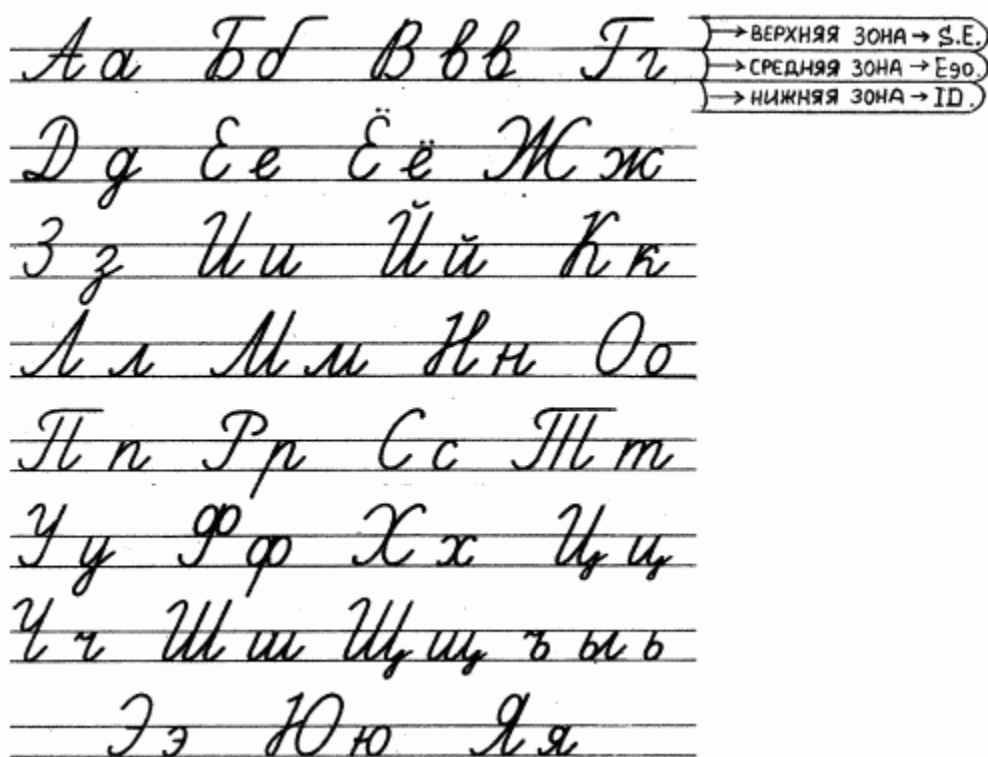 Аа Бб Ввв Гг
→ ВЕРХНЯЯ ЗОНА → S.E.
→ СРЕДНЯЯ ЗОНА → Ego.
→ НИЖНЯЯ ЗОНА → ID.
Дд Ее Ёё Жж
Зз Ии Йй Кк
Лл Мм Нн Оо
Пп Рр Сс Тт
Уу Фф Хх Цц
Чч Шш Щщ ъ ы ь
Ээ Юю Яя